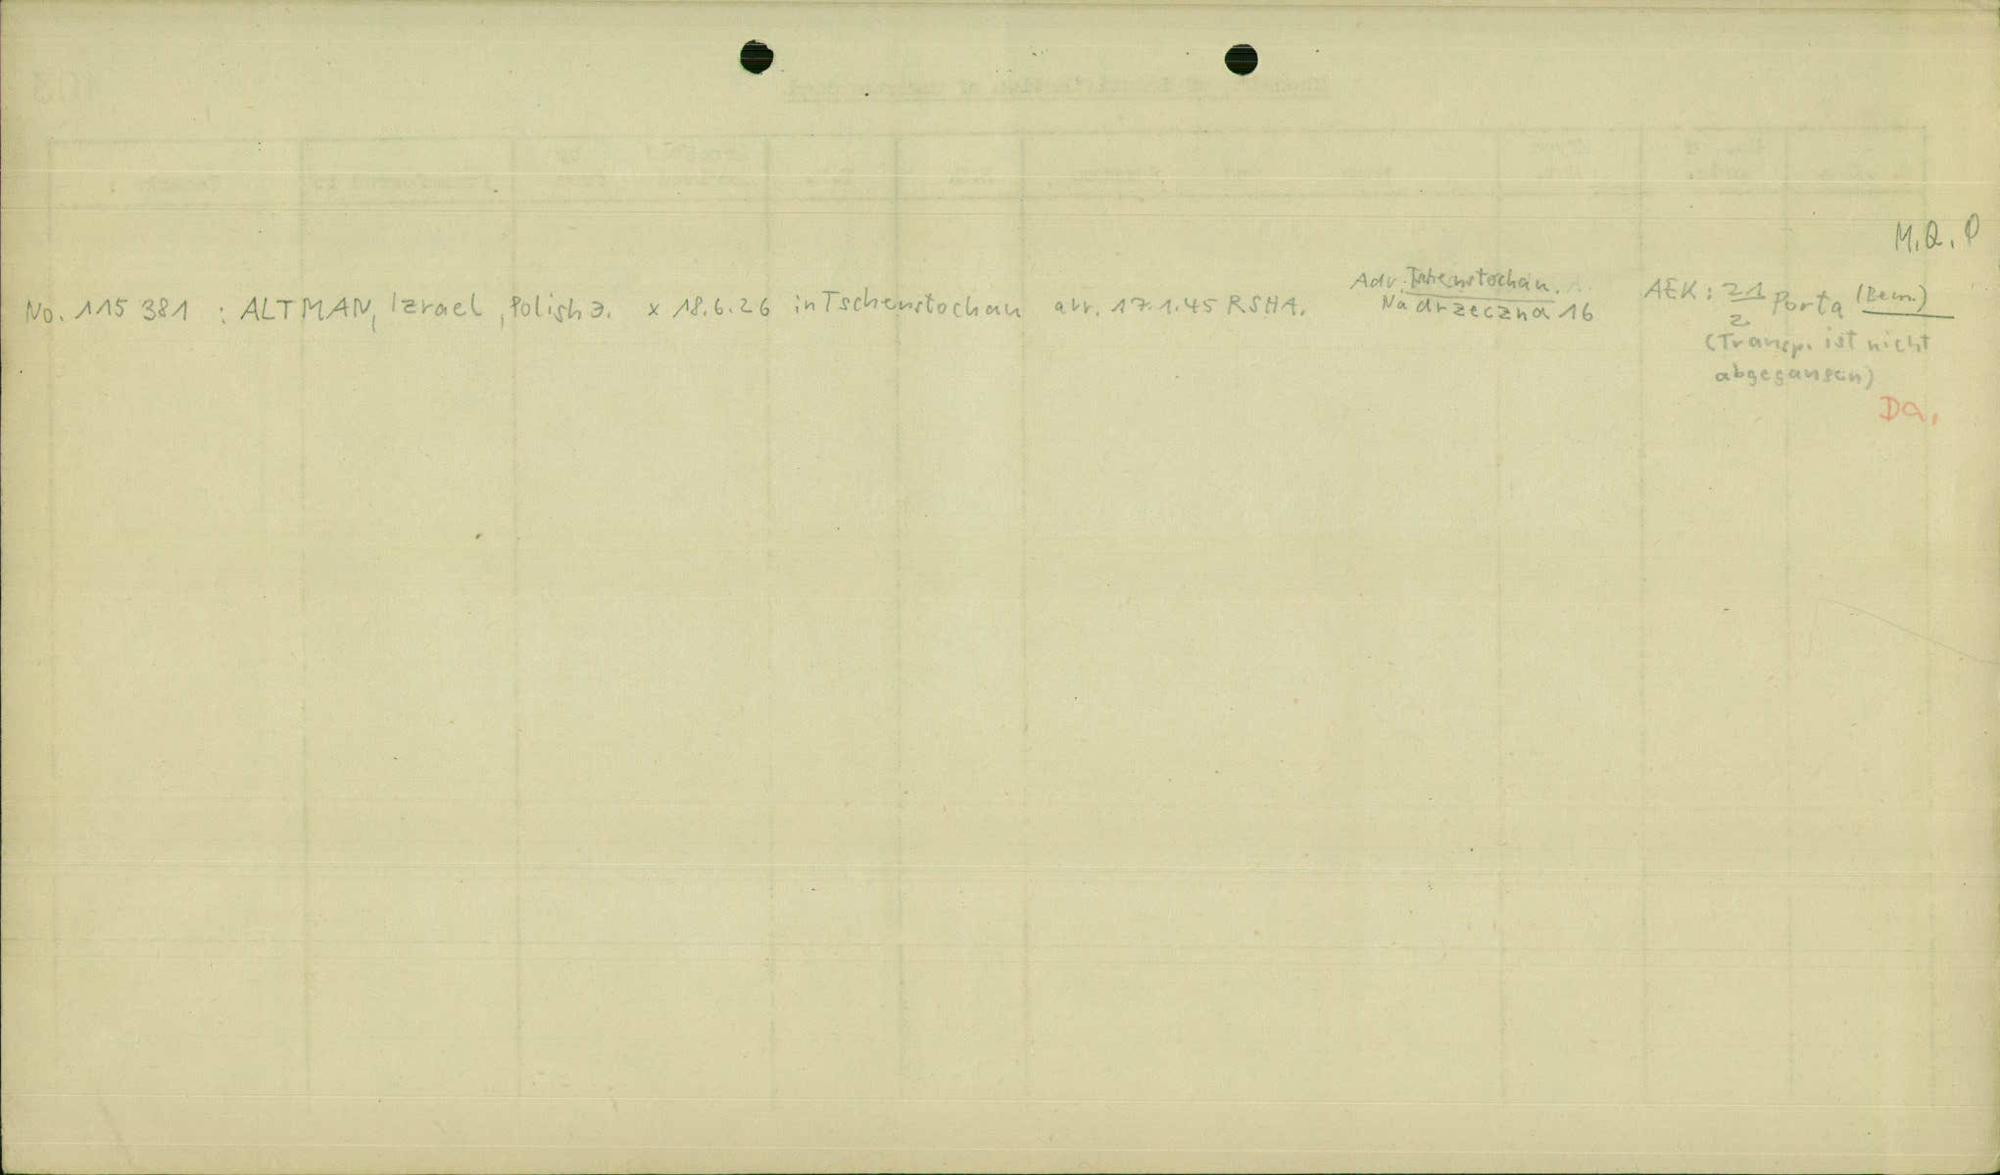 M.Q.P
No. 115 381 : ALTMAN, Izrael, Polish J. x 18.6.26 in Tschenstochau arr. 17.1.45 RSHA.
Adr. Tschenstochau.
Nadrzeczna 16
AEK: 21 Porta (Bem.)
2
(Transp. ist nicht
abgegangen)
Da.